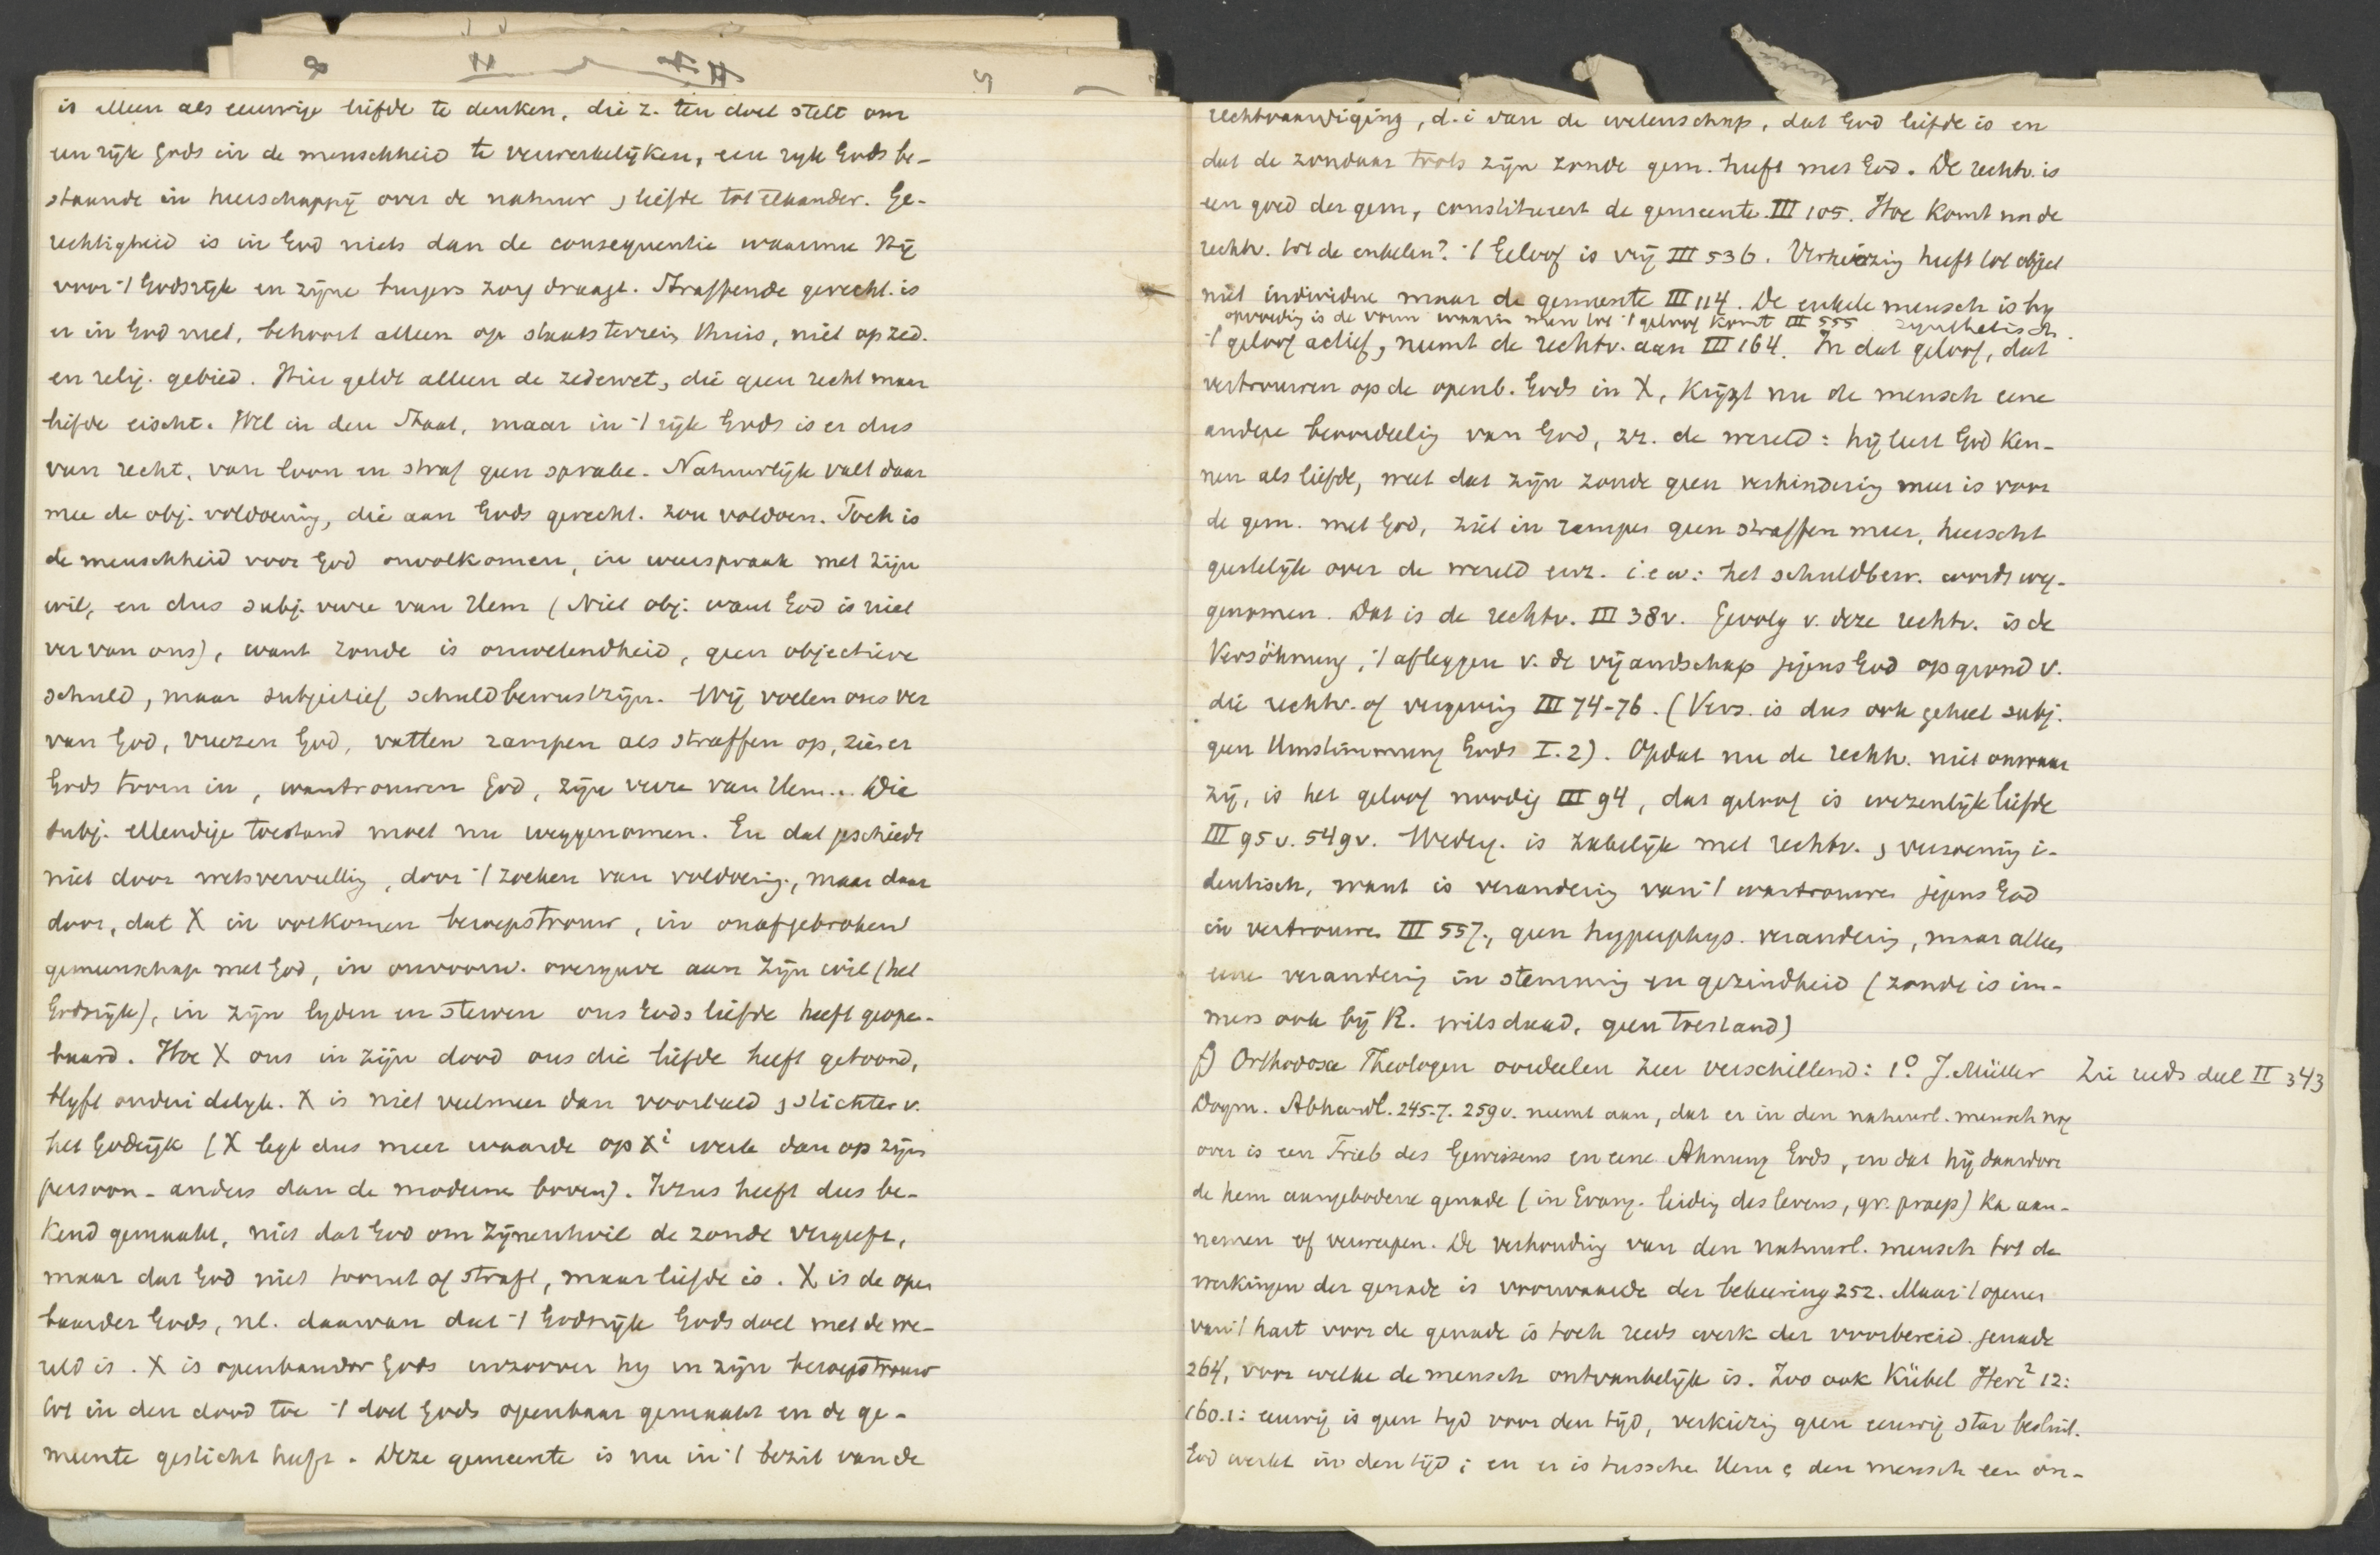 is alleen als eeuwige liefde te denken, die z. ten doel stelt om
een rijk Gods in de menschheid te verwerkelijken, een ryk Gods be-
staande in heerschappij over de natuur & liefde tot elkander. Ge-
rechtigheid is in God niets dan de consequentie waarmee Hij
voor 't Godsrijk en zijne burgers zorg draagt. Straffende gerecht. is
er in God niet, behoort alleen op staatsterrein thuis, niet op zed.
en relig. gebied. Hier geldt alleen de zedewet, die geen recht maar
liefde eischt. Wel in den Staat, maar in 't rijk Gods is er dus
van recht, van loon en straf geen sprake. Natuurlijk valt daar
mee de obj. voldoening, die aan Gods gerecht. zou voldoen. Toch is
de menschheid voor God onvolkomen, in weerspraak met zijn
wil, en dus subj. verre van Hem (Niet obj. want God is niet
ver van ons), want zonde is onwetendheid, geen objectieve
schuld, maar subjectief schuldbewustzijn. Wij voelen ons ver
van God, vreezen God, vatten rampen als straffen op, zien er
Gods toorn in, wantrouwen God, zijn verre van Hem... Die
subj. ellendige toestand moet nu weggenomen. En dat geschiedt
niet door wetsvervulling, door 't zoeken van voldoening, maar daar
door, dat X in volkomen beroepstrouw, in onafgebroken
gemeenschap met God, in onvoorw. overgave aan zijn wil (het
Godsrijk), in zijn lyden en sterven ons Gods liefde heeft geopen-
baard. Hoe X ons in zijn dood ons die liefde heeft getoond,
blyft onduidelyk. X is niet veelmeer dan voorbeeld & stichter v.
het Godsrijk (X legt dus meer waarde op Xi werk dan op zijn
persoon - anders dan de moderne boven). Jezus heeft dus be-
kend gemaakt, niet dat God om Zijnentwil de zonde vergeeft,
maar dat God niet toornt of straft, maar liefde is. X is de open
baarder Gods, nl. daarvan dat 't Godsrijk Gods doel met de we-
reld is. X is openbaarder Gods inzoover hy in zijn beroepstrouw
tot in den dood toe 't doel Gods openbaar gemaakt en de ge-
meente gesticht heeft. Deze gemeente is nu in 't bezit van de
rechtvaardiging, d.i van de wetenschap, dat God liefde is en
dat de zondaar trots zijn zonde gem. heeft met God. De rechtv. is
een goed der gem, constitueert de gemeente III 105. Hoe komt nu de
rechtv. tot de enkelen? 't Geloof is vrij III 536. Verkiezing heeft tot object
niet individuen maar de gemeente III 114. De enkele mensch is by
opvoedig is de vorm waarin men tot 't geloof komt III 555 synthetisch.
't geloof actief, neemt de rechtv. aan III 164. In dat geloof, dat
vertrouwen op de openb. Gods in X, krijgt nu de mensch eene
andere beoordeelig van God, zz. de wereld: hij leert God ken-
nen als liefde, weet dat zijn zonde geen verhindering meer is voor
de gem. met God, ziet in rampen geen straffen meer, heerscht
geestelijk over de wereld enz. i.e.w: het schuldbew. wordt weg-
genomen. Dat is de rechtv. III 38v. Gevolg v. deze rechtv. is de
Versöhnung, 't afleggen v. de vijandschap jegens God op grond v.
die rechtv. of vergeving III 74-76. (Vers. is dus ook geheel subj.
geen Umstimmung Gods I.2). Opdat nu de rechtv. niet onwaar
zij, is het geloof noodig III 94, dat geloof is wezenlijk liefde
III 95v. 549v. Wederg. is zakelijk met rechtv. & verzoening i-
dentisch, want is verandering van 't wantrouwen jegens God
in vertrouwen III 557., geen hyperphys. verandering, maar alleen
eene verandering in stemming en gezindheid (zonde is im-
mers ook bij R. wilsdaad, geen toestand)
f) Orthodoxe Theologen oordeelen zeer verschillend: 1° J. Müller Zie reeds deel II 343
Dogm. Abhandl. 245-7. 259v. neemt aan, dat er in den natuurl. mensch nog
over is een Trieb des Gewissens en eene Ahnung Gods, en dat hij daardoor
de hem aangebodene genade (in Evang. leiding des levens, gr. praep) ka aan-
nemen of verwerpen. De verhouding van den natuurl. mensch tot de
werkingen der genade is voorwaarde der bekeering 252. Maar 't openen
van 't hart voor de genade is toch reeds werk der voorbereid. genade
264, voor welke de mensch ontvankelijk is. Zoo ook Kübel Herz² 12:
160.1: eeuwig is geen tyd voor den tijd, verkiezing geen eeuwig star besluit.
God werkt in den tijd; en er is tusschen Hem & den mensch een on-